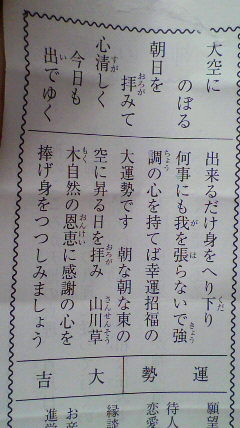 大空に
のぼる
朝日を
拝みて
心清しく
今日も
出でゆく
出来るだけ身をへり下り
何事にも我を張らないで強
調の心を持てば幸運招福の
大運勢です 朝な朝な東の
空に昇る日を拝み 山川草
木自然の恩恵に感謝の心を
捧げ身をつつしみましょう
運勢
大吉
願望
待人
恋愛
縁談
お産
進学